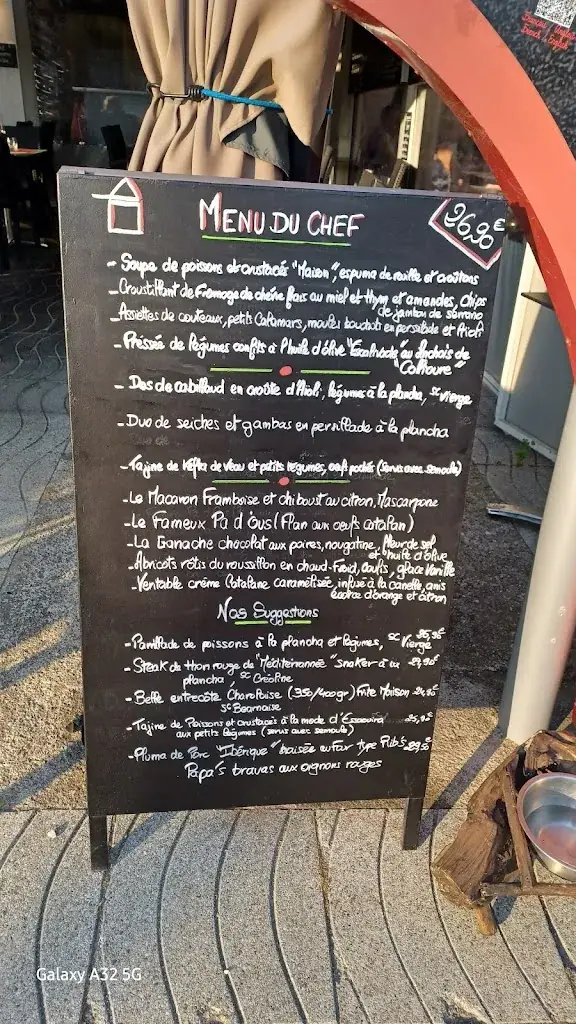 MENU DU CHEF
26,90€
- Soupe de poissons et crustacés "Maison", espuma de rouille et croûtons
- Croustillant de Fromage de chèvre frais au miel et thym et amandes, chips
de jambon de serrano
- Assiettes de couteaux, petits calamars, moules bouchots en persillade et Aïoli
- Pressée de légumes confits à l'huile d'olive "Escalivade" au Anchois de
"Collioure"
- Dos de cabillaud en croûte d'Aïoli, légumes à la plancha, sc vierge
- Duo de seiches et gambas en persillade à la plancha
- Tajine de Kefta de Veau et petits légumes, oeufs pochés (servis avec semoule)
- Le Macaron Framboise et chiboust au citron, Mascarpone
- Le Fameux Pa d'Ous (Flan aux oeufs catalan)
- La Ganache chocolat aux poires, nougatine, fleur de sel
et huile d'olive
- Abricots rôtis du roussillon en chaud-froid, coulis, glace Vanille
- Veritable crème Catalane caramélisée, infusé à la canelle, anis
écorce d'orange et citron
Nos Suggestions
- Parrillade de poissons à la plancha et légumes, sc Vierge
- Steak de thon rouge de "Méditerrannée" snaker à la
plancha sc Créoline
- Belle entrecôte Charolaise (350/400gr) Frite Maison 24,9€
sc Bearnaise
- Tajine de Poissons et crustacés à la mode d'Essaouira 25,9€
aux petits légumes (servis avec semoule)
- Pluma de Porc "Ibérique" baisée au four type Rib's
Papa's bravas aux oignons rouges
Français
English
Galaxy A32 5G